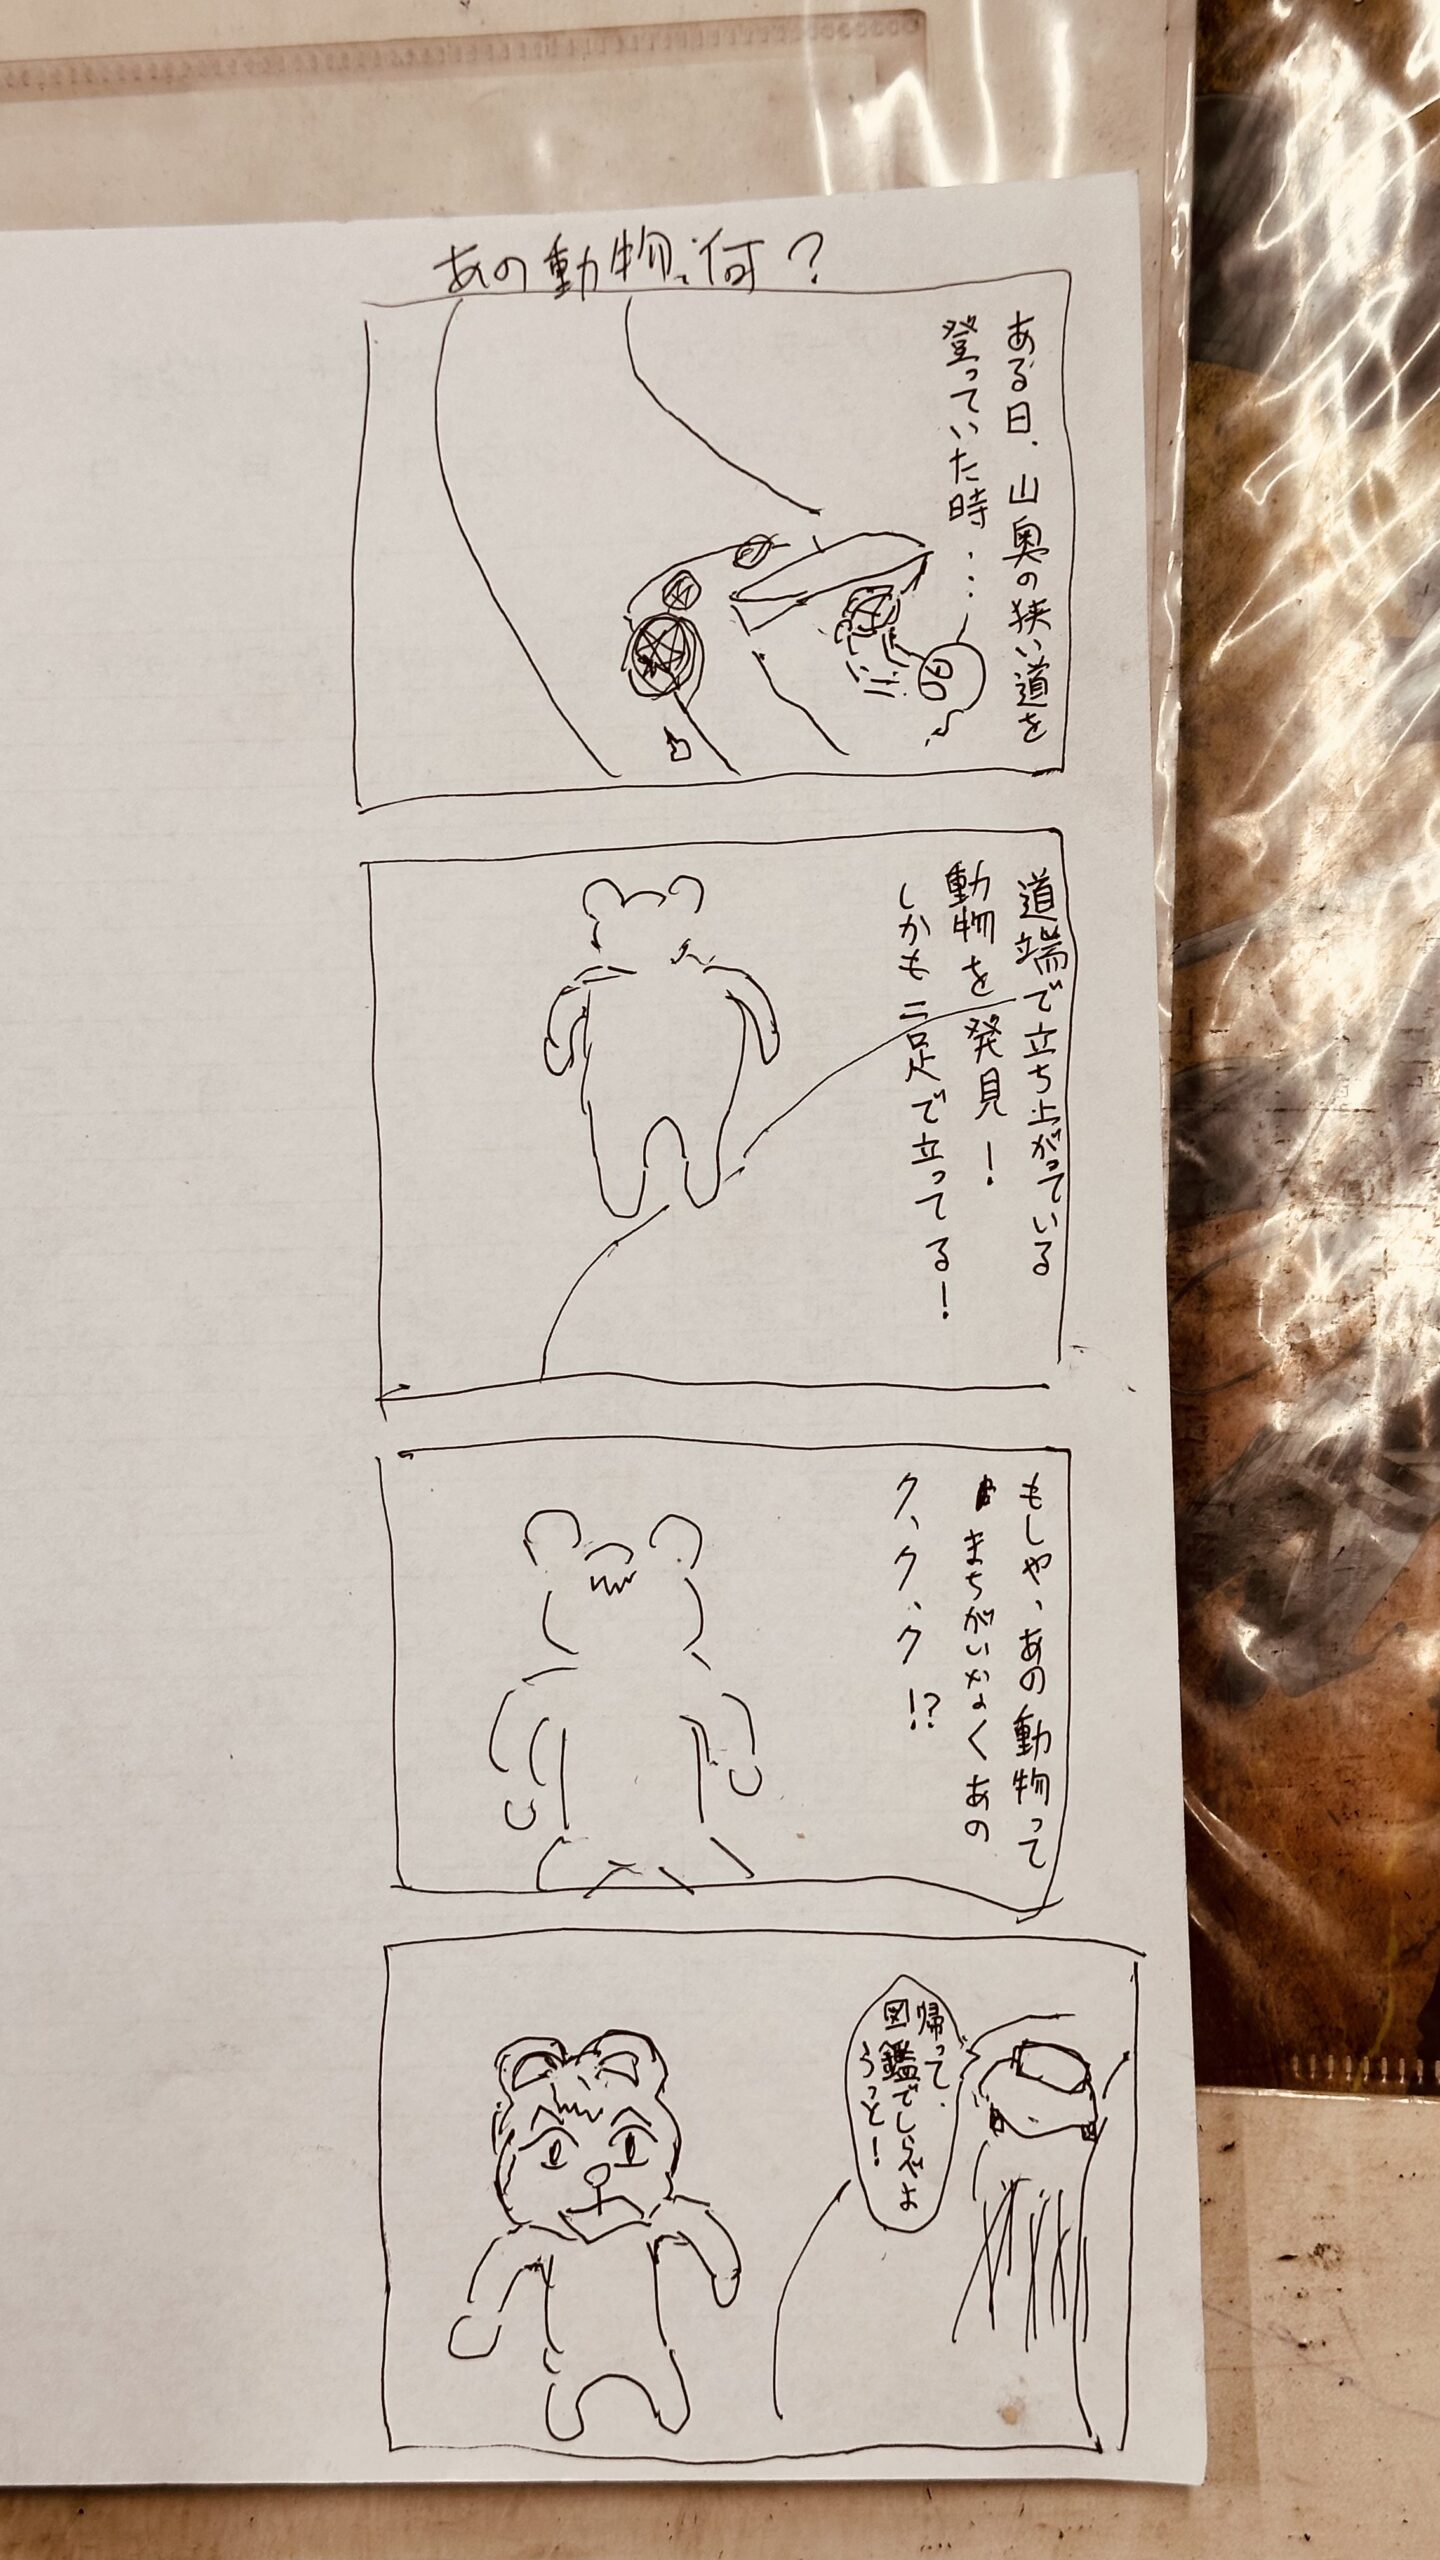 あの動物、何?
ある日、山奥の狭い道を
登っていた時・・・
道端で立ち上がっている
動物を発見!
しかも二足で立ってる!
もしや、あの動物って
まちがいなくあの
ク、ク、ク!?
帰って、
図鑑でしらべよ
うっと!